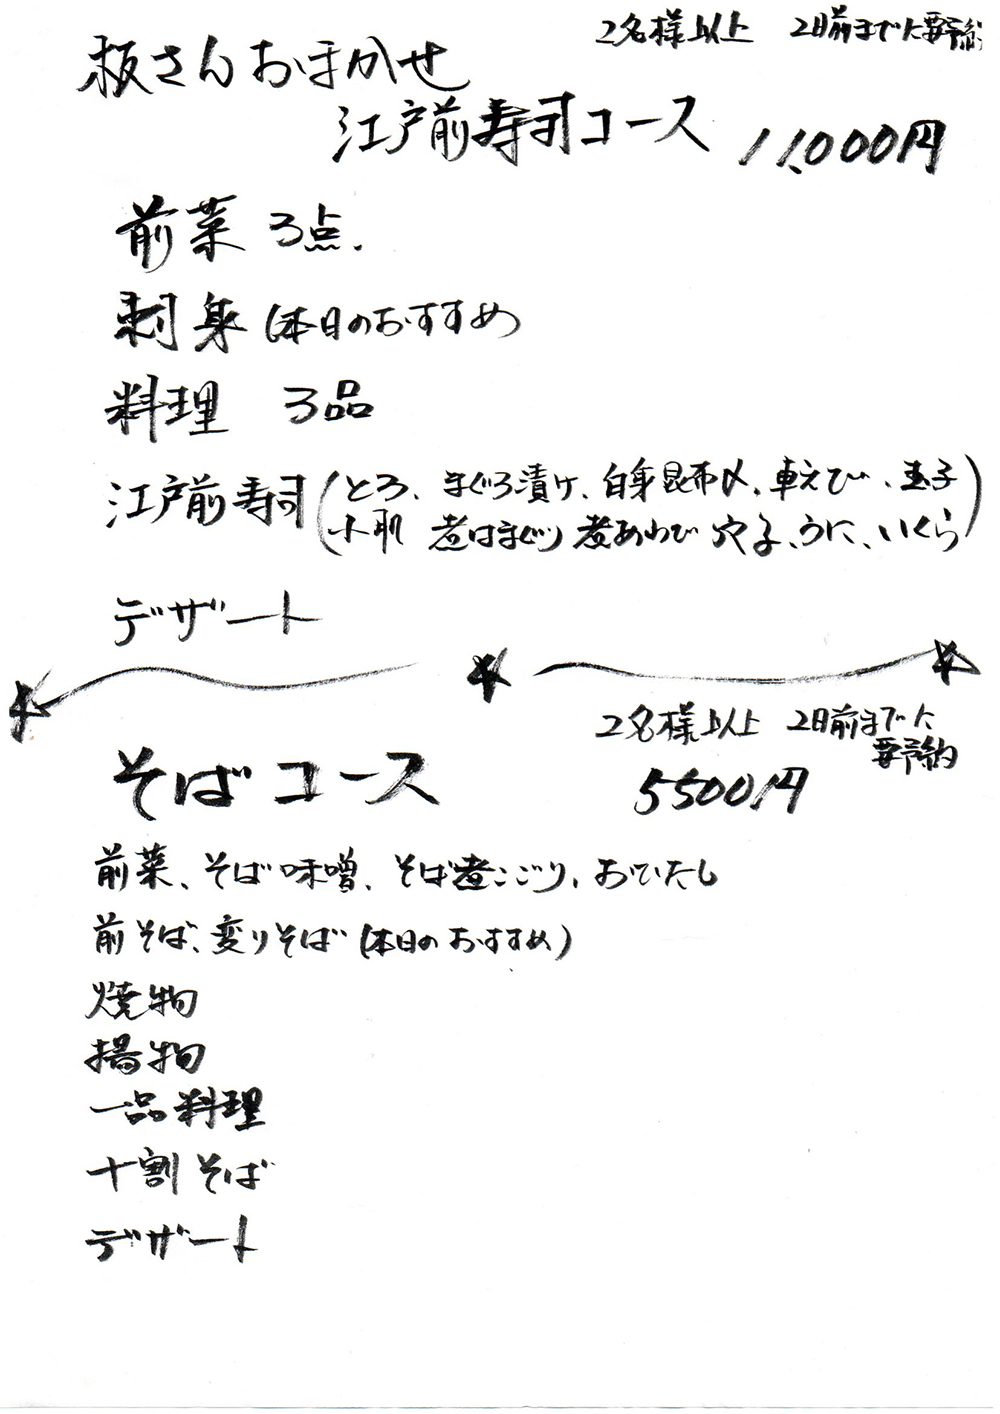 2名様以上 2日前までに要予約
板さんおまかせ
江戸前寿司コース 11,000円
前菜 3点.
刺身(本日のおすすめ)
料理 3品
江戸前寿司(とろ、まぐろ漬け、白身昆布〆、車えび、玉子
小肌 煮はまぐり 煮あわび 穴子、うに、いくら)
デザート
2名様以上 2日前までに
要予約
そばコース 5500円
前菜、そば味噌、そば煮こごり、おひたし
前そば、変りそば(本日のおすすめ)
焼物
揚物
一品料理
十割そば
デザート